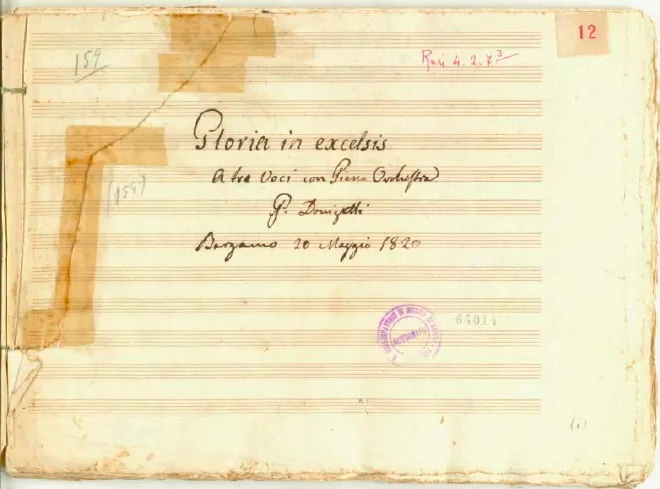 12
159
Rari 4.2.7³
Gloria in excelsis
A tre Voci con Piena Orchestra
(159)
G. Donizetti
Bergamo 20 Maggio 1820
AUTOGRAFO
64014
(1)